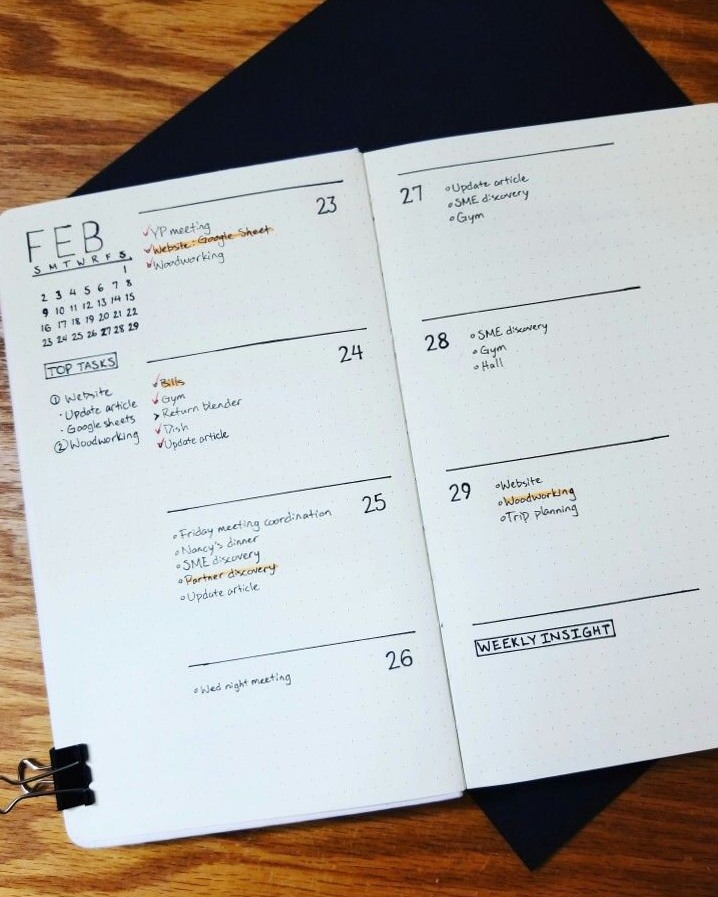 FEB
S M T W R F S
1
2 3 4 5 6 7 8
9 10 11 12 13 14 15
16 17 18 19 20 21 22
23 24 25 26 27 28 29
TOP TASKS
① Website
· Update article
· Google sheets
② Woodworking
23
✓YP meeting
✓Website: Google Sheet
✓Woodworking
24
✓Bills
✓Gym
>Return blender
✓Dish
✓Update article
25
•Friday meeting coordination
•Nancy's dinner
•SME discovery
•Partner discovery
•Update article
26
•Wed night meeting
27
•Update article
•SME discovery
•Gym
28
•SME discovery
•Gym
•Hall
29
•Website
•Woodworking
•Trip planning
WEEKLY INSIGHT